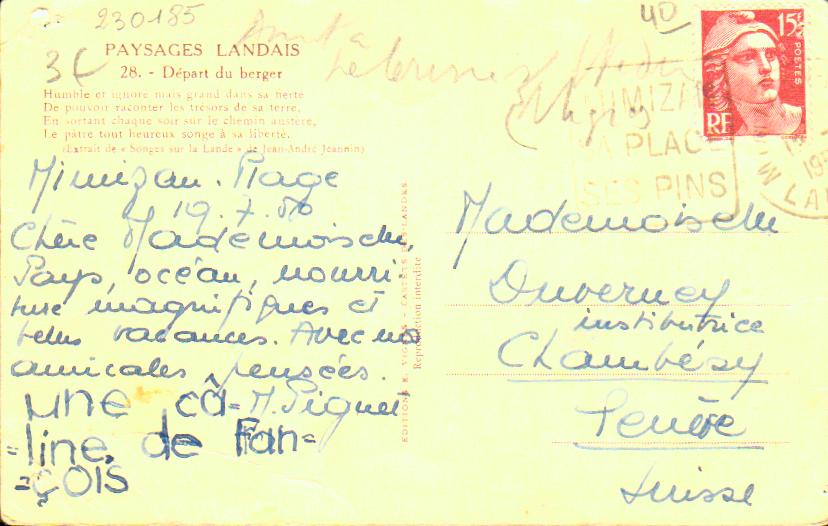 230185
40
3€
PAYSAGES LANDAIS
28. - Départ du berger
Humble et ignoré mais grand dans sa fierté
De pouvoir raconter les trésors de sa terre,
En sortant chaque soir sur le chemin austère,
Le pâtre tout heureux songe à sa liberté.
(Extrait de « Songes sur la Lande » de Jean-André Jeannin)
Mimizan. Plage
19.7.50
Chère Mademoiselle,
Pays, océan, nourri-
ture magnifiques et
belles vacances. Avec nos
amicales pensées.
M. Piguet
une câ=
=line, de Fran=
=çois
Reproduction interdite
15F
POSTES
RF
MIMIZAN
SA PLAGE
SES PINS
Mademoiselle
Duverney
institutrice
Chambésy
Genève
Suisse